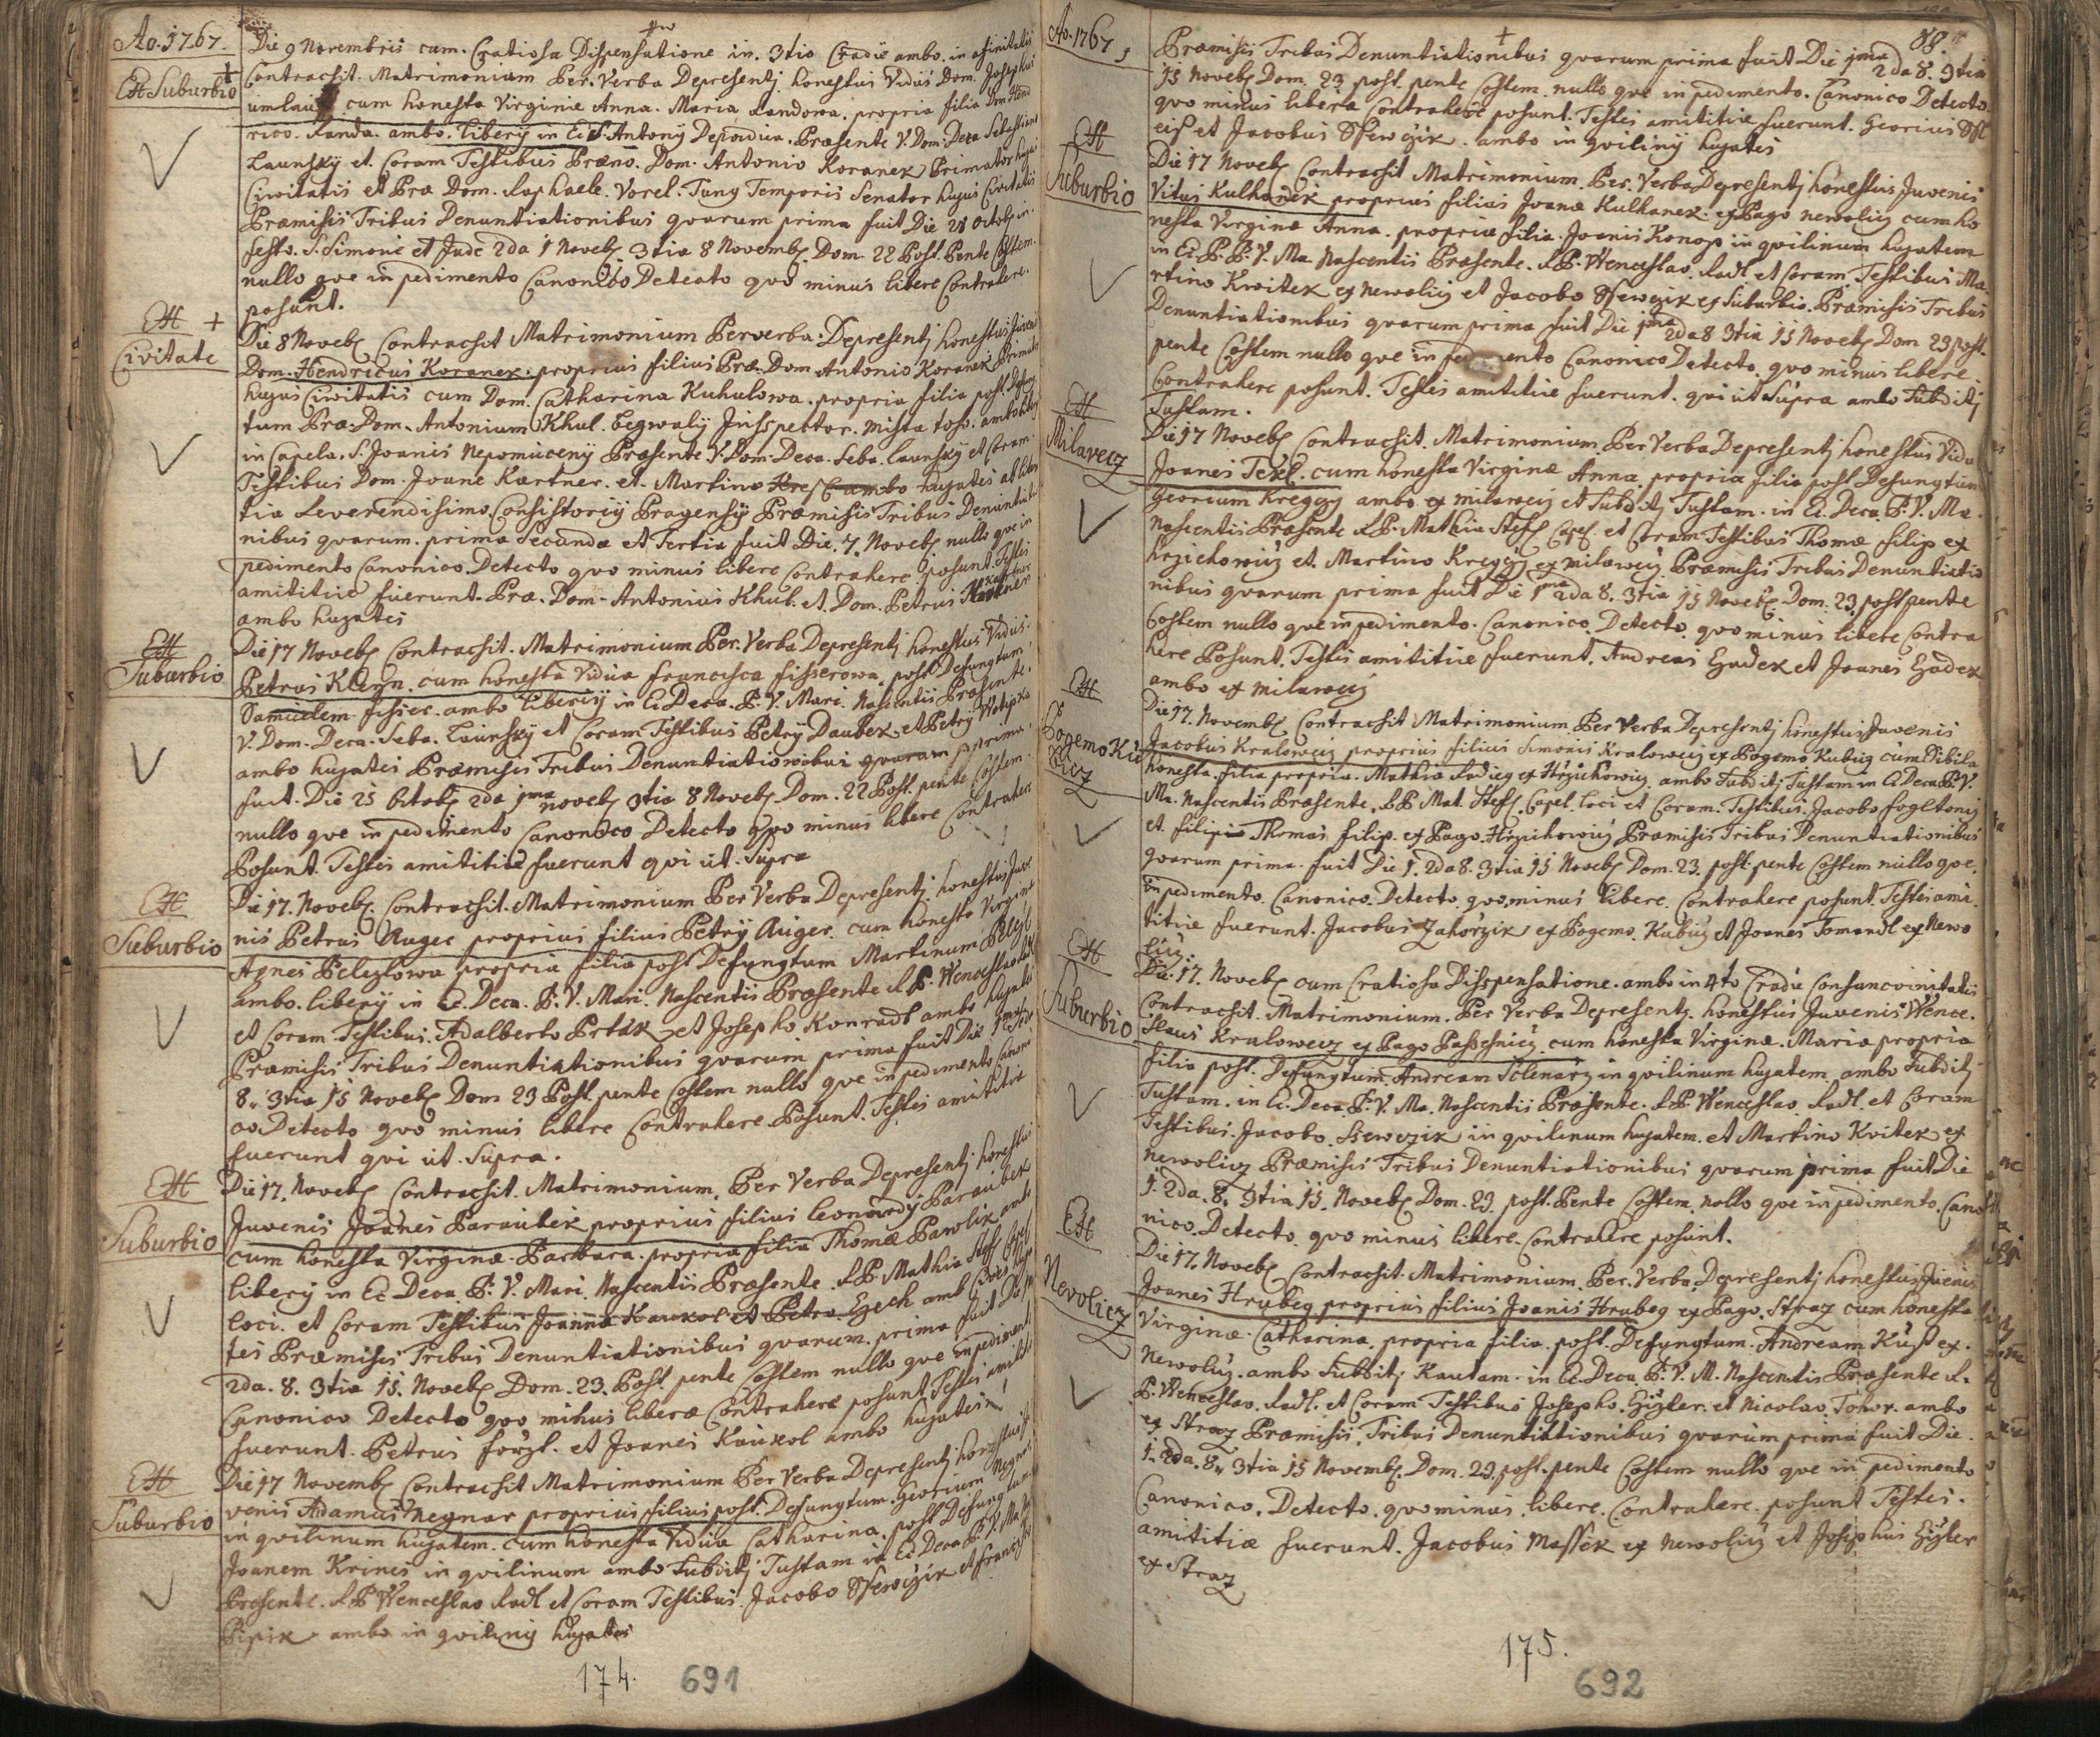 Ao. 1767.
Ex Suburbio
Die 9 Novembris cum. Gratiosa Dispensatione in. 3tio Gradu ambo. in afinitatis
Contracsit. Matrimonium Per. Verba Depresentj honestus Vidus Dom. Josephus
cum honesta Virginæ Anna. Maria Randowa. propria filia Dom. Hend
rico. Randa. ambo. libery in Ec. S. Antony Depadua. Præsente V. Dom. Deca Sebastiano
Launsky et. Coram Testibus Præno. Dom. Antonio Koranek Primator hujus
Civitatis et Præ Dom. Raphaele. Vorel. Tung Temporis Senator hujus Civitatis
Præmisis Tribus Denuntiationibus qvarum prima fuit Die 28 Octobr in.
festo. S. Simonis et Jude 2da 1 Noveb 3tia 8 Novemb. Dom. 22 Post. Pente Costem.
nullo qve in pedimento Canonico Detecto qvo minus libere Contrahere.
posunt.
Ex Civitate
Die 8 Noveb Contracsit Matrimonium Perverba. Depresentj honestus Juvenis
Dom. Hendricus Koranek. proprius filius Præ. Dom Antonio Koranek Primator
hujus Civitatis cum Dom. Catharina Kuhulowa. propria filia post. Defung
tum Præ. Dom. Antonium Khul. Begwaly Insspektor. mista toho. ambo libery
in Capela. S. Joanis Nepomuceny Præsente V. Dom. Deca. Seba. Launsky et Coram.
Testibus Dom. Joane Kartner. et. Martino ambo hujates
tia Reverendisimo Consistoriy Pragensy Præmisis Tribus Denuntiatio
nibus qvarum. prima Secunda et Tertia fuit Die. 7. Noveb nullo qve in
pedimento Canonico. Detecto qvo minus libere Contrahere. posunt. Testes
amititiæ fuerunt. Præ. Dom. Antonius Khul. et. Dom. Petrus Kartner
ambo hujates
Ex Suburbio
Die 17 Noveb Contracsit. Matrimonium Per. Verba Depresentj honestus Vidus.
Petrus Kleyn. cum honesta Vidua francisca fisserowa. post. Defungtum
Samuelem fisser. ambo liberiy in Ec Deca. B. V. Mari. Nascentis Præsente.
V. Dom. Deca. Seba. Launsky et Coram Testibus Petry Daubek et Petry Wotipka
ambo hujates Præmisis Tribus Denuntiationibus qvarum prima
fuit. Die 25 Octob 2da 1ma noveb 3tia 8 Noveb. Dom. 22 Post. pente Costem.
nullo qve in pedimento Canonico Detecto qvo minus libere Contrahere
Posunt. Testes amititiæ fuerunt qvi ut. Supra
Ex Suburbio
Die 17. Noveb. Contracsit. Matrimonium Per Verba Depresentj. honestus Juve
nis Petrus Auger proprius filius Petry Auger. cum honesta Virginæ
Agnes Pelczlowa propria filia post Defungtum Martinum Pelczl
ambo. libery in Ec. Deca. B. V. Mari. Nascentis Præsente R. P. Wenceslao Radl
et Coram Testibus. Adalberto Prtak et Josepho Konradt ambo hujates
Præmisis Tribus Denuntiationibus qvarum prima fuit Die 1ma 2da
8. 3tia 15 Noveb Dom 23 Post. pente Costem nullo qve in pedimento Canoni
co. Detecto qvo minus libere Contrahere Posunt. Testes amititiæ
fuerunt qvi ut. Supra.
Ex Suburbio
Die 17. Noveb Contracsit. Matrimonium. Per Verba Depresentj honestus
Juvenis Joanes Paraubek proprius filius Leonardy Paraubek
cum honesta Virginæ. Barbara. propria filia Thomæ Pawlik ambo
libery in Ec Deca B. V. Mari. Nascentis Præsente. R. P. Mathia Steff Capel
loci. et Coram Testibus Joanne Kaurol et Petro Czech ambo
tes Præmisis Tribus Denuntiationibus qvarum. prima fuit Die
2da. 8. 3tia 15. Noveb Dom. 23. Post. pente Costem nullo qve in pediment
Canonico Detecto qvo minus libere Contrahere posunt. Testes amitit
fuerunt. Petrus forzt. et Joanes Kaurol ambo hujates
Ex Suburbio
Die 17 Novemb Contracsit Matrimonium Per Verba Depresentj honestus Ju
venis Adamus Negnar proprius filius post. Defungtum. Georium Negnar.
in qvilinum hujatem. cum honesta Vidua Catharina. post Defungtum.
Joanem Krines in qvilinum ambo Subditj Tustam in Ec Deca B. V. Ma.
Præsente. R P Wenceslao Radl et Coram Testibus. Jacobo Ssewczik et francz
Pipik ambo in qviliny hujates
174. 691
Ao. 1767,
88.
Præmisis Tribus Denuntiationibus qvarum prima fuit Die 1ma 2da 8. 3tia
15 Noveb Dom. 23 post. pente Costem. nullo qve in pedimento. Canonico Detecto
qvo minus libere Contrahere posunt. Testes amititiæ fuerunt. Georius
et Jacobus Ssewczik. ambo in qviliny hujates
Ex Suburbio
Die 17 Noveb Contracsit Matrimonium. Per. Verba Depresentj honestus Juvenis
Vitus Kulhanek proprius filius Joanæ Kulhanek. ex Pago newolicz cum ho
nesta Virginæ Anna. propria filia. Joanis Konop in qvilinum hujatem
in Ec. P. B. V. Ma. Nascentis Præsente. R. P. Wenceslao. Radl et Coram. Testibus Ma.
rtino Kwitek ex newolicz et Jacobo Ssewczik ex Suburbio. Præmisis Tribus
Denuntiationibus qvarum prima fuit Die 1ma 2da 8 3tia 15 Noveb Dom 23 post.
pente Costem nullo qve in pedimento Canonico Detecto. qvo minus libere.
Contrahere posunt. Testes amititiæ fuerunt. qvi ut Supra ambo Subditj
Tustam.
Ex Milavecz
Die 17 Noveb Contracsit. Matrimonium Per Verba Depresentj honestus Vidu
Joanes Texl. cum honesta Virginæ Anna. propria filia post Defungtum
Georium Kreggy ambo ex milavecz et Subditj Tustam. in Ec. Deca. B. V. Ma.
Nascentis Præsente R P. Mathia Steff Capel. et Coram Testibus Thomæ filip ex
hrzichowicz et. Martino Kreggy ex milawecz Præmisis Tribus Denuntiatio
nibus qvarum prima fuit Die 1ma 2da 8. 3tia 15 Noveb. Dom. 23. post pente
Costem nullo qve in pedimento. Canonico. Detecto. qvo minus libere Contra
here Posunt. Testes amititiæ fuerunt. Andreas Hadek et Joanes Hadek
ambo ex milavecz
Ex Bogemo Kubicz
Die 17. Novemb Contracsit Matrimonium Per Verba Depresentj honestus Juvenis
Jacobus Kralowecz proprius filius Simonis Kralowecz ex Bogemo Kubicz cum Sibila
honesta. filia propria. Mathiæ Radieg ex Hrzichowicz. ambo Subditj Tustam in Ec Deca B. V.
Ma. Nascentis Præsente. R P Mat. Steff. Capel loci et Coram. Testibus. Jacobo fogltony
et. filipis Thomas filip. ex Pago. Hrzichowicz Præmisis Tribus Denuntiationibus
qvarum prima. fuit Die 1. 2da 8. 3tia 15 Noveb Dom. 23. post. pente Costem nullo qve.
in pedimento. Canonico. Detecto. qvo minus libere. Contrahere posunt. Testes ami
titiæ fuerunt. Jacobus Zahorzik ex Bogemo. Kubicz et Joanes Tomandl ex Newo
licz.
Ex Suburbio
Die. 17. Noveb cum Gratiosa Disspensatione. ambo in 4to Gradu Consancvinitatis
Contracsit. Matrimonium. Per Verba Depresentj. honestus Juvenis Wence.
slaus Kralowecz ex Pago Passesnicz. cum honesta Virginæ. Maria propria
filia post. Defungtum. Andream Sclenarz in qvilinum hujatem. ambo Subditj
Tustam. in Ec. Deca. B. V. Ma. Nascentis Præsente. R P. Wenceslao. Radl. et Coram
Testibus. Jacobo. Ssewczik in qvilinum hujatem. et Martino Kvitek ex
newolicz Præmisis Tribus Denuntiationibus qvarum prima fuit Die
1. 2da. 8. 3tia 15. Noveb Dom. 23. post. Pente Costem. nullo qve in pedimento. Cano
nico. Detecto. qvo minus libere. Contrahere posunt.
Ex Nevolicz
Die 17. Noveb Contracsit. Matrimonium. Per. Verba. Depresentj honestus Juvenis
Joanes Hrubeg proprius filius Joanis Hrubeg ex Pago. Straz cum honesta
Virginæ. Catharina. propria filia. post. Defungtum. Andream Kuss ex.
Newolicz. ambo Subditj Kautam. in Ec. Deca. B. V. M. Nascentis Præsente R.
P. Wenceslao. Radl. et Coram Testibus Josepho. Gizler. et Nicolao. Tohor. ambo
ex Straz Præmisis. Tribus Denuntiationibus qvarum prima fuit Die.
1. 2da. 8. 3tia 15 Novemb. Dom. 23. post. pente Costem nullo qve in pedimento
Canonico. Detecto. qvo minus. libere. Contrahere. posunt Testes.
amititiæ fuerunt. Jacobus Massek ex newolicz et Josephus Gizler
ex Straz
175.
692